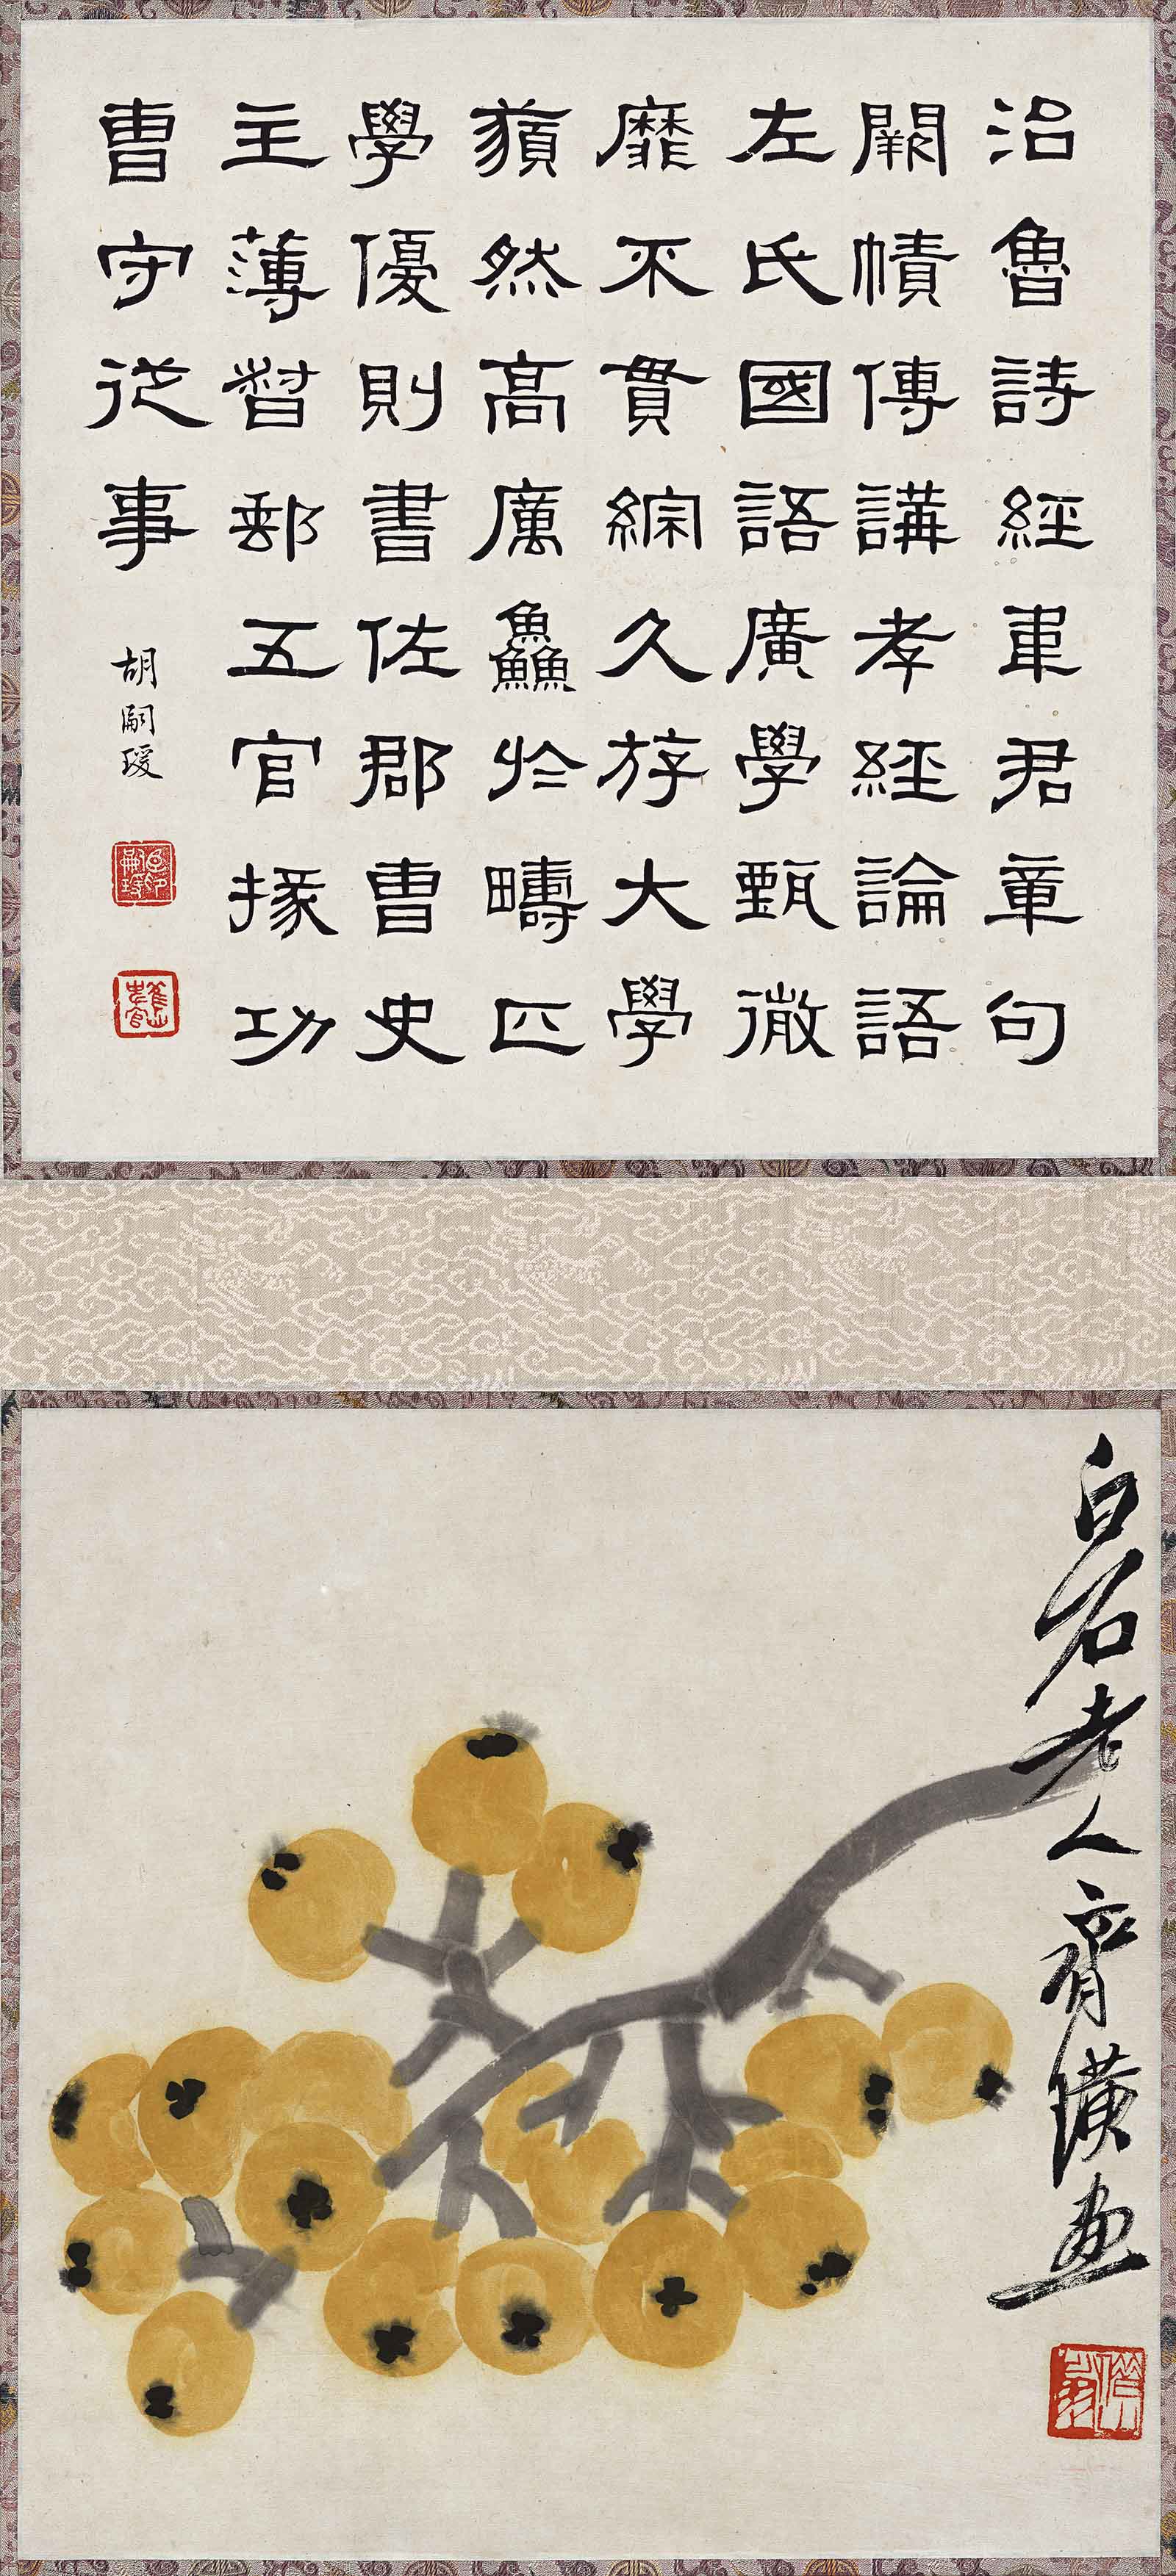 治魯詩經韋君章句
闕幘傳講孝經論語
左氏國語廣學甄徹
靡不貫綜久游大學
藐然高厲鱻於疇匹
學優則書佐郡曹史
主薄督郵五官掾功
曹守從事
胡嗣瑗
白石老人齊璜畫